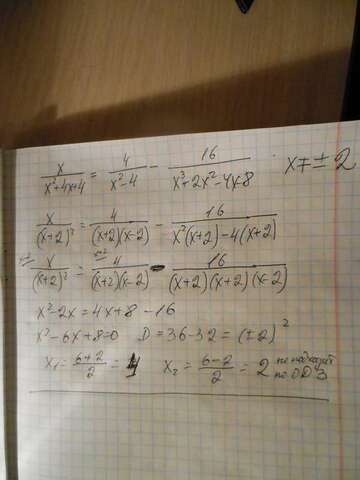 x/(x²+4x+4) = 4/(x²-4) - 16/(x³+2x²-4x-8) x≠±2
x/(x+2)² = 4/((x+2)(x-2)) - 16/(x²(x+2)-4(x+2))
x/(x+2)² = 4/((x+2)(x-2)) - 16/((x+2)(x+2)(x-2))
x²-2x=4x+8-16
x²-6x+8=0 D=36-32=(±2)²
x₁=(6+2)/2=4 x₂=(6-2)/2=2 не подходит
по ОДЗ